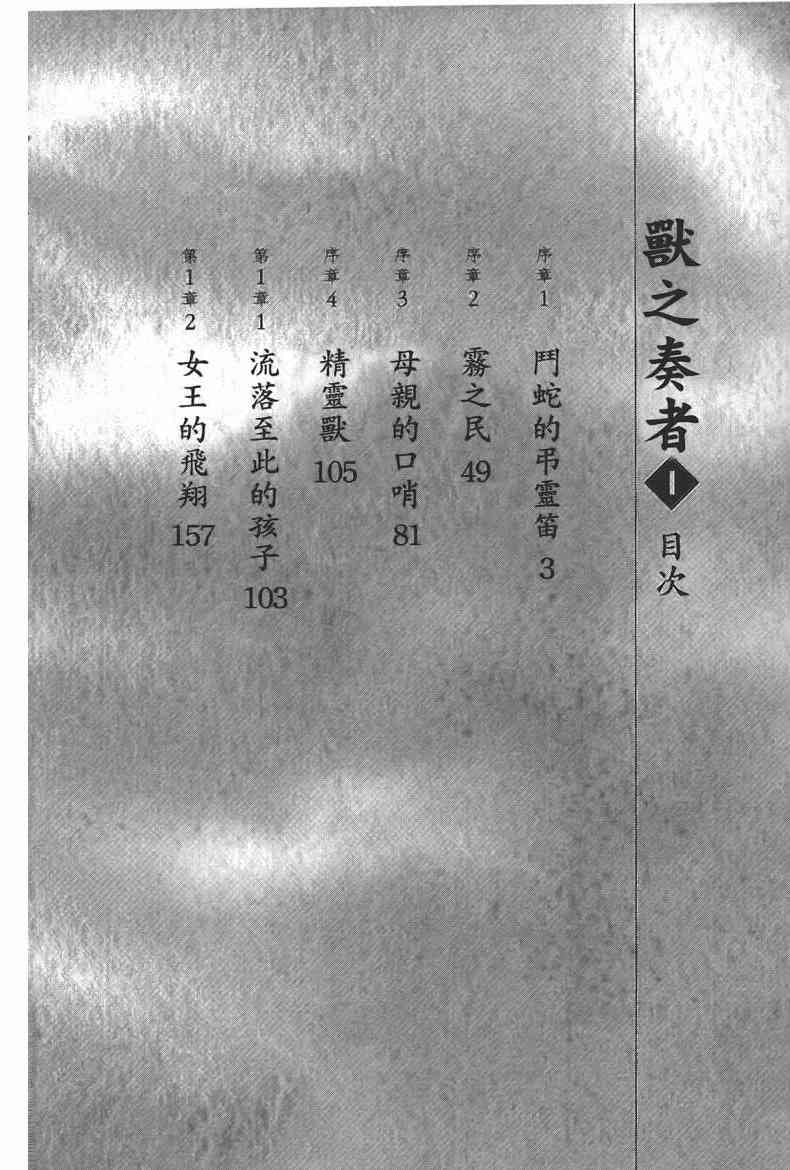 獸之奏者 I 目次
序章1 鬥蛇的弔靈笛 3
序章2 霧之民 49
序章3 母親的口哨 81
序章4 精靈獸 105
第1章1 流落至此的孩子 103
第1章2 女王的飛翔 157